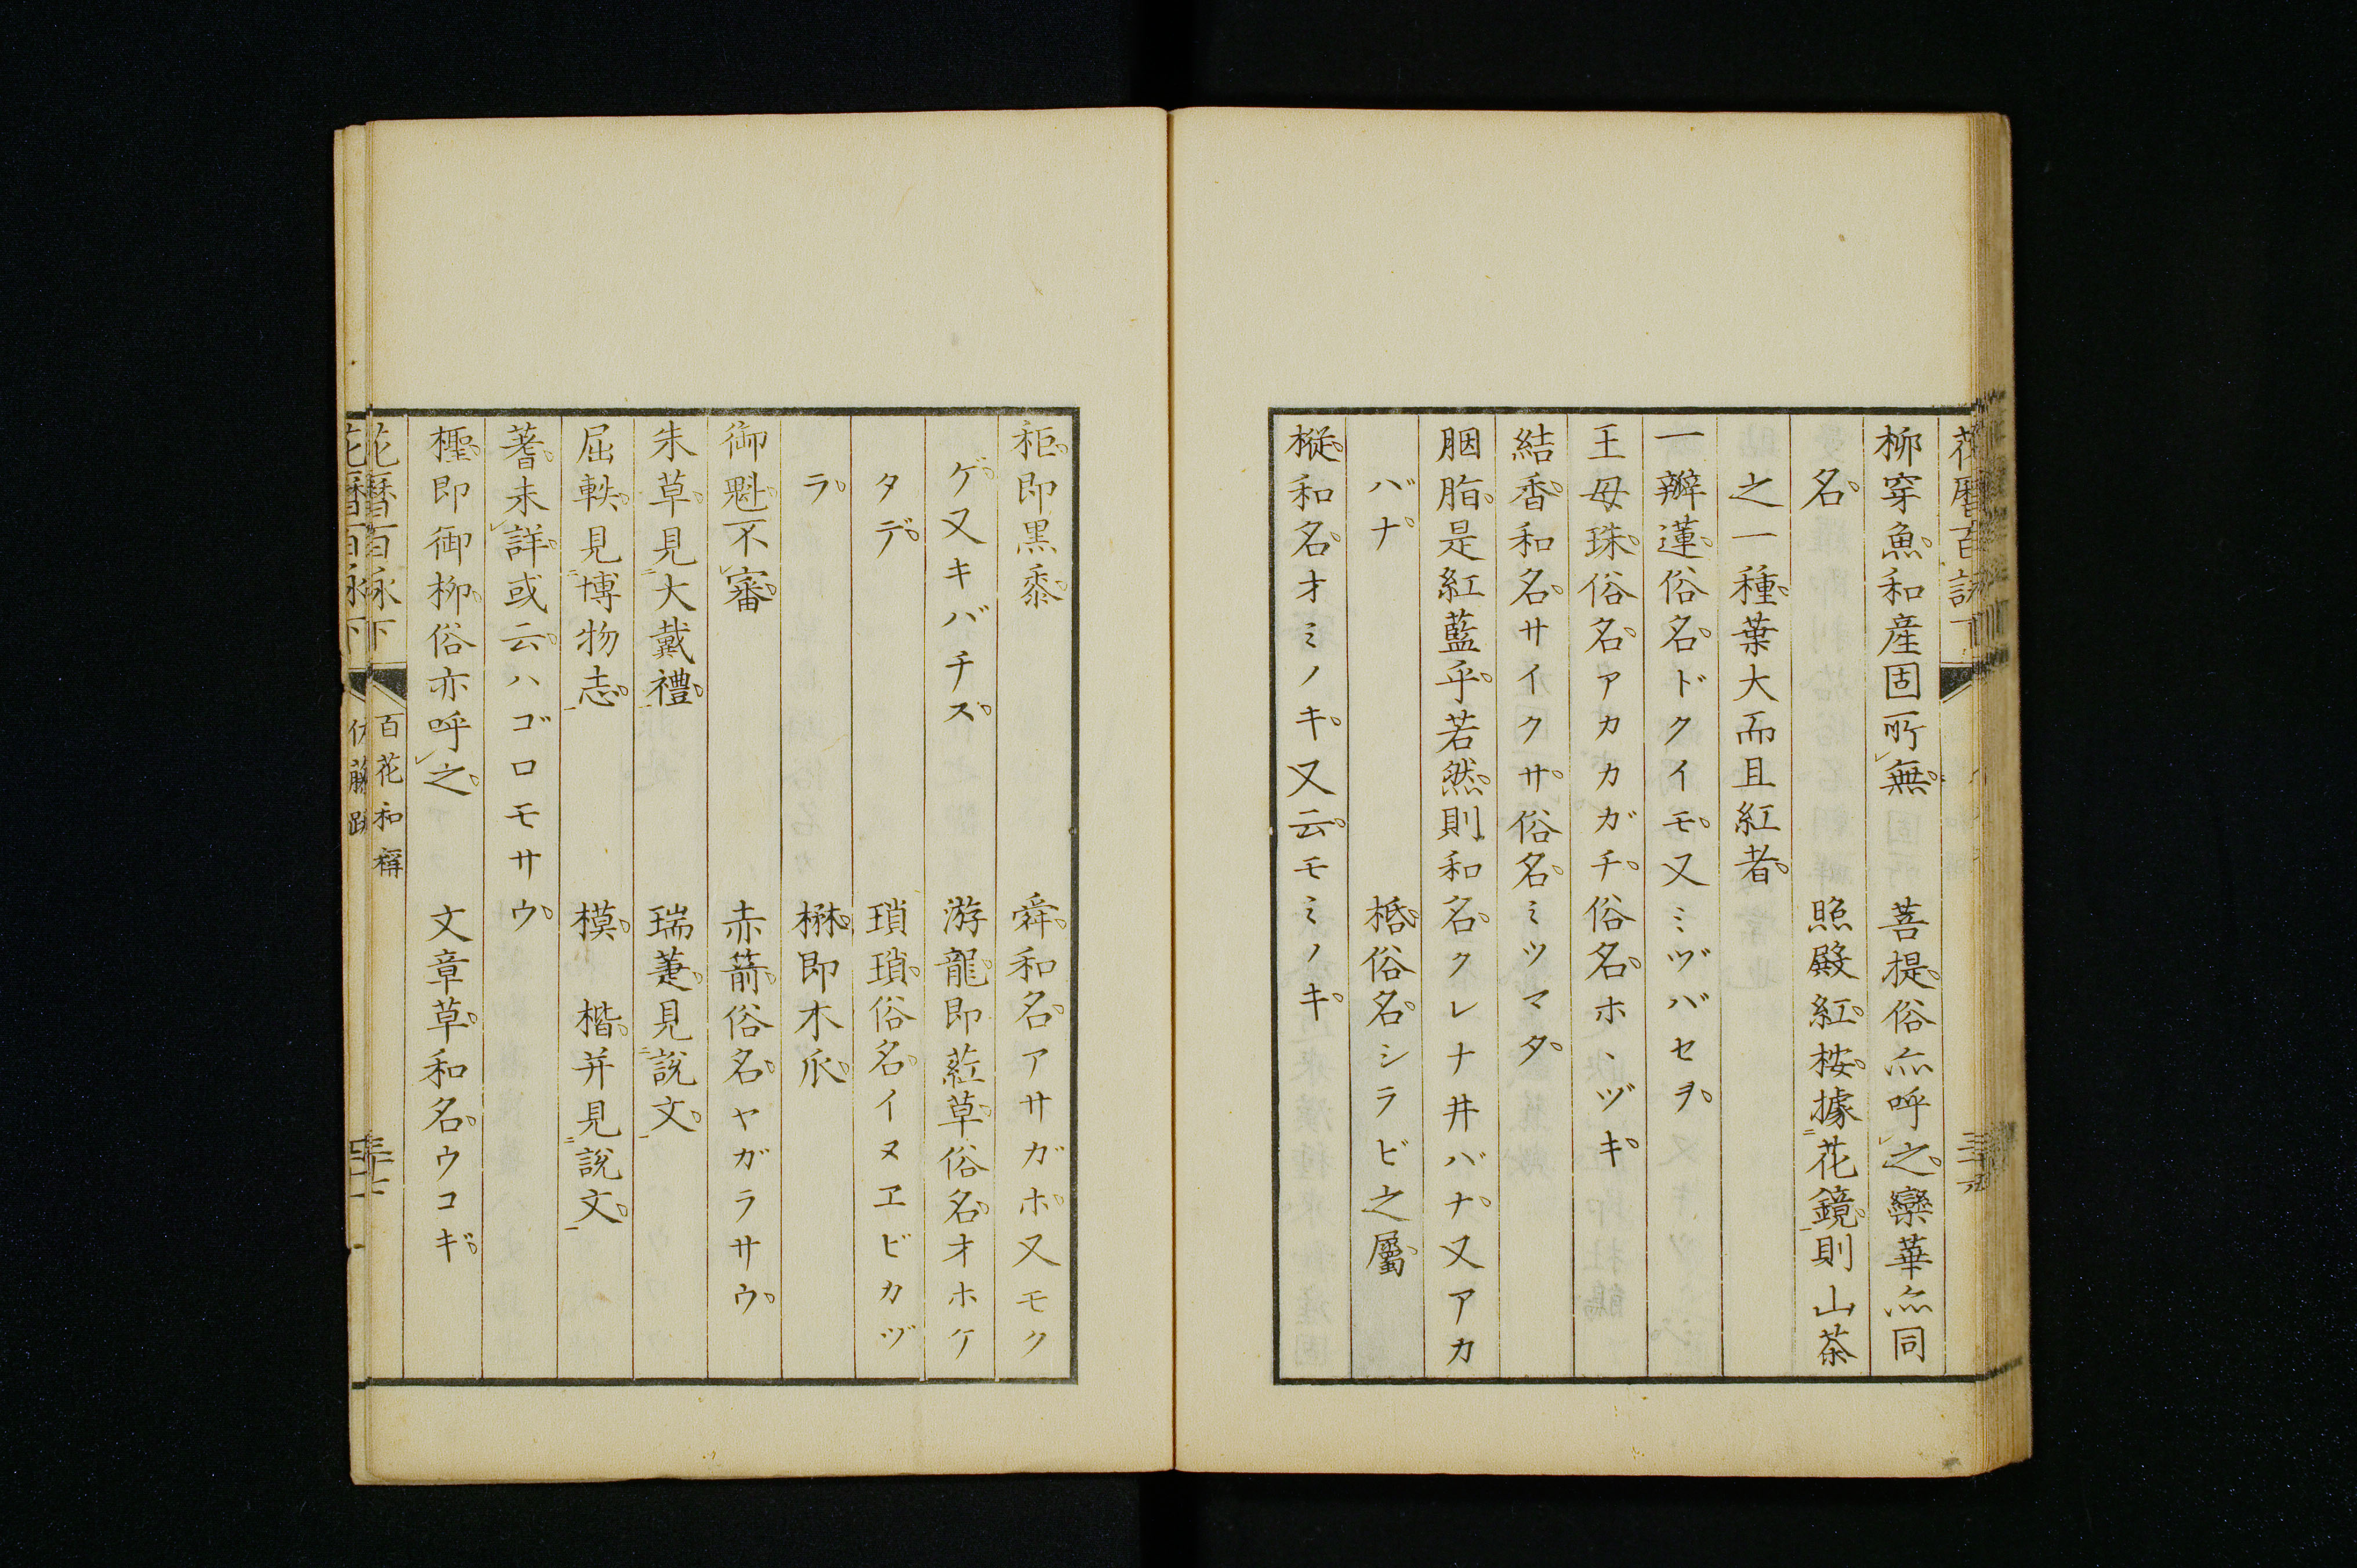 柳穿魚。和産固所無。 菩提。俗亦呼之。欒華亦同
名。 照殿紅。桉。據花鏡。則山茶
之一種。葉大而且紅者。
一瓣蓮。俗名。ドクイモ。又ミヅバセヲ。
王母珠。俗名。アカカガチ。俗名。ホヽヅキ。
結香。和名。サイクサ。俗名。ミツマタ。
胭脂。是紅藍乎。若然。則和名。クレナ井バナ。又アカ
バナ。 㭽。俗名。シラビ之屬。
樅。和名。オミノキ。又云。モミノキ。
秬。即黒黍。 舜。和名。アサガホ。又モク
ゲ。又キバチス。 游龍。即葒草。俗名。オホケ
タデ。 瑣瑣。俗名。イヌヱビカヅ
ラ。 楙。即木瓜。
御魁。不審。 赤箭。俗名。ヤガラサウ。
朱草。見大戴禮。 瑞萐。見說文。
屈軼。見博物志。 模。 楷。并見說文。
蓍。未詳。或云。ハゴロモサウ。
檉。即御柳。俗亦呼之。 文章草。和名。ウコギ。
花曆百詠下 百花和稱